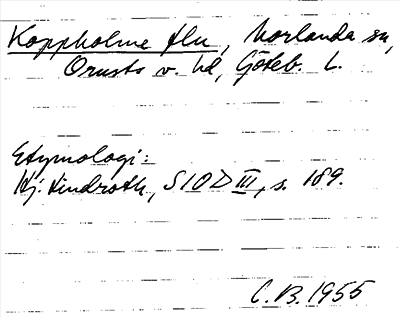 Koppholme flu, Morlanda sn,
Orusts v. hd, Göteb. L.
Etymologi:
Hj. Lindroth, SIOD III, s. 189.
C.B. 1955